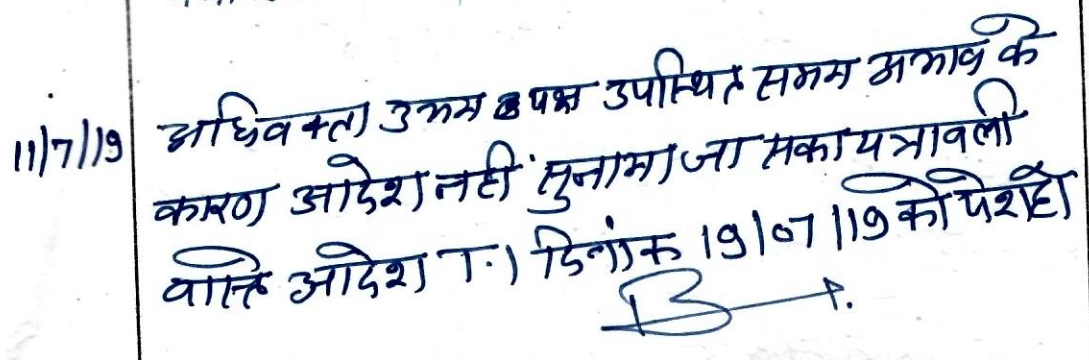 11/7/19
अधिवक्ता उभय पक्ष उपस्थित समय अभाव के
कारण आदेश नहीं सुनाया जा सका पत्रावली
वास्ते आदेश T.I दिनांक 19/07/19 को पेश हो